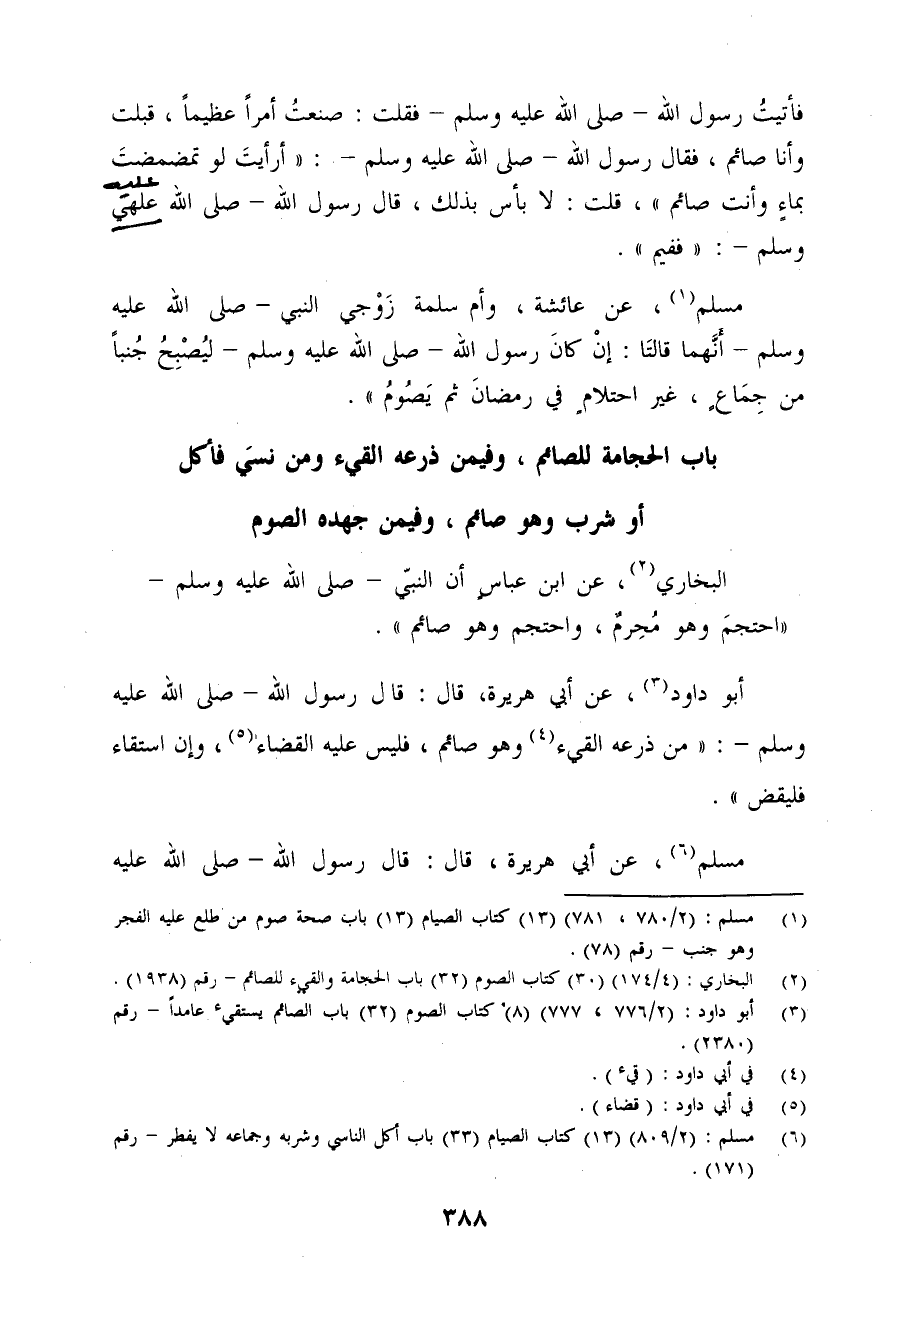 فأتيتُ رسول الله – صلى الله عليه وسلم – فقلت : صنعتُ أمراً عظيماً ، قبلت
وأنا صائم ، فقال رسول الله – صلى الله عليه وسلم – : « أرأيتَ لو تمضمضتَ
عليه
بماءٍ وأنت صائم » ، قلت : لا بأس بذلك ، قال رسول الله – صلى الله علهيّ
وسلم – : « ففيم » .
مسلم(١) ، عن عائشة ، وأم سلمة زَوْجي النبي – صلى الله عليه
وسلم – أَنَّهما قالتَا : إنْ كانَ رسول الله – صلى الله عليه وسلم – ليُصْبِحُ جُنباً
من جِمَاعٍ ، غير احتلامٍ في رمضانَ ثم يَصُومُ » .
باب الحجامة للصائم ، وفيمن ذرعه القيء ومن نسيَ فأكل
أو شرب وهو صائم ، وفيمن جهده الصوم
البخاري(٢) ، عن ابن عباسٍ أن النبيّ – صلى الله عليه وسلم –
«احتجمَ وهو مُحِرمٌ ، واحتجم وهو صائم » .
أبو داود(٣) ، عن أبي هريرة، قال : قال رسول الله – صلى الله عليه
وسلم – : « من ذرعه القيء(٤) وهو صائم ، فليس عليه القضاء(٥) ، وإن استقاء
فليقض » .
مسلم(٦) ، عن أبي هريرة ، قال : قال رسول الله – صلى الله عليه
(١) مسلم : (٧٨٠/٢ ، ٧٨١) (١٣) كتاب الصيام (١٣) باب صحة صوم من طلع عليه الفجر
وهو جنب – رقم (٧٨) .
(٢) البخاري : (١٧٤/٤) (٣٠) كتاب الصوم (٣٢) باب الحجامة والقيء للصائم – رقم (١٩٣٨) .
(٣) أبو داود : (٧٧٦/٢ ، ٧٧٧) (٨) كتاب الصوم (٣٢) باب الصائم يستقيء عامداً – رقم
(٢٣٨٠) .
(٤) في أبي داود : ( قيء ) .
(٥) في أبي داود : ( قضاء ) .
(٦) مسلم : (٨٠٩/٢) (١٣) كتاب الصيام (٣٣) باب أكل الناسي وشربه وجماعه لا يفطر – رقم
(١٧١) .
٣٨٨